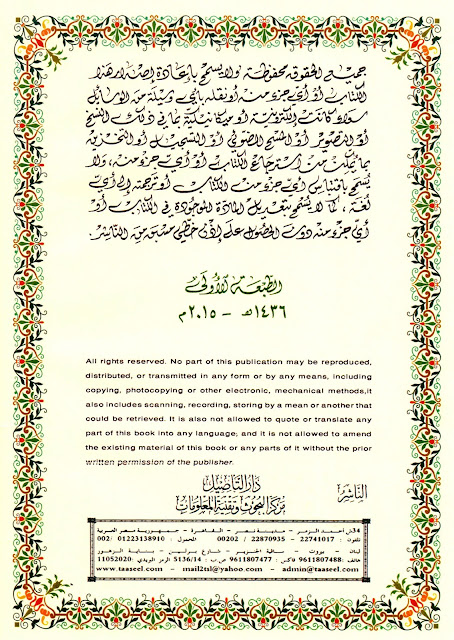 جميع الحقوق محفوظة ولا يسمح بإعادة إصدار هذا
الكتاب أو أي جزء منه أو نقله بأي وسيلة من الوسائل
سواء كانت إلكترونية أو ميكانيكية بما في ذلك النسخ
أو التصوير أو المسح الضوئي أو التسجيل أو التخزين
بما يمكن من استرجاع الكتاب أو أي جزء منه، ولا
يُسمح باقتباس أي جزء من الكتاب أو ترجمته إلى أي
لغة، كما لا يُسمح بتعديل المادة الموجودة في الكتاب أو
أي جزء منه دون الحصول على إذن خطي مسبق من الناشر.
الطبعة الأولى
١٤٣٦هـ - ٢٠١٥م
All rights reserved. No part of this publication may be reproduced,
distributed, or transmitted in any form or by any means, including
copying, photocopying or other electronic, mechanical methods,it
also includes scanning, recording, storing by a mean or another that
could be retrieved. It is also not allowed to quote or translate any
part of this book into any language; and it is not allowed to amend
the existing material of this book or any parts of it without the prior
written permission of the publisher.
الناشر
دار التأصيل
مركز البحوث وتقنية المعلومات
34ش أحمد الزمر - مدينة نصر - القاهرة - جمهورية مصر العربية
تلفون : 22741017 - 22870935 / 00202 المحمول : 01223138910 / 002
لبنان - بيروت - ساقية الجنزير - شارع برلين - بناية الزهور
هاتف: 9611807488 فاكس : 9611807477 ص.ب : 5136/14 الرمز البريدي : 11052020
www.taaseel.com - mail2tsl@yahoo.com - admin@taaseel.com